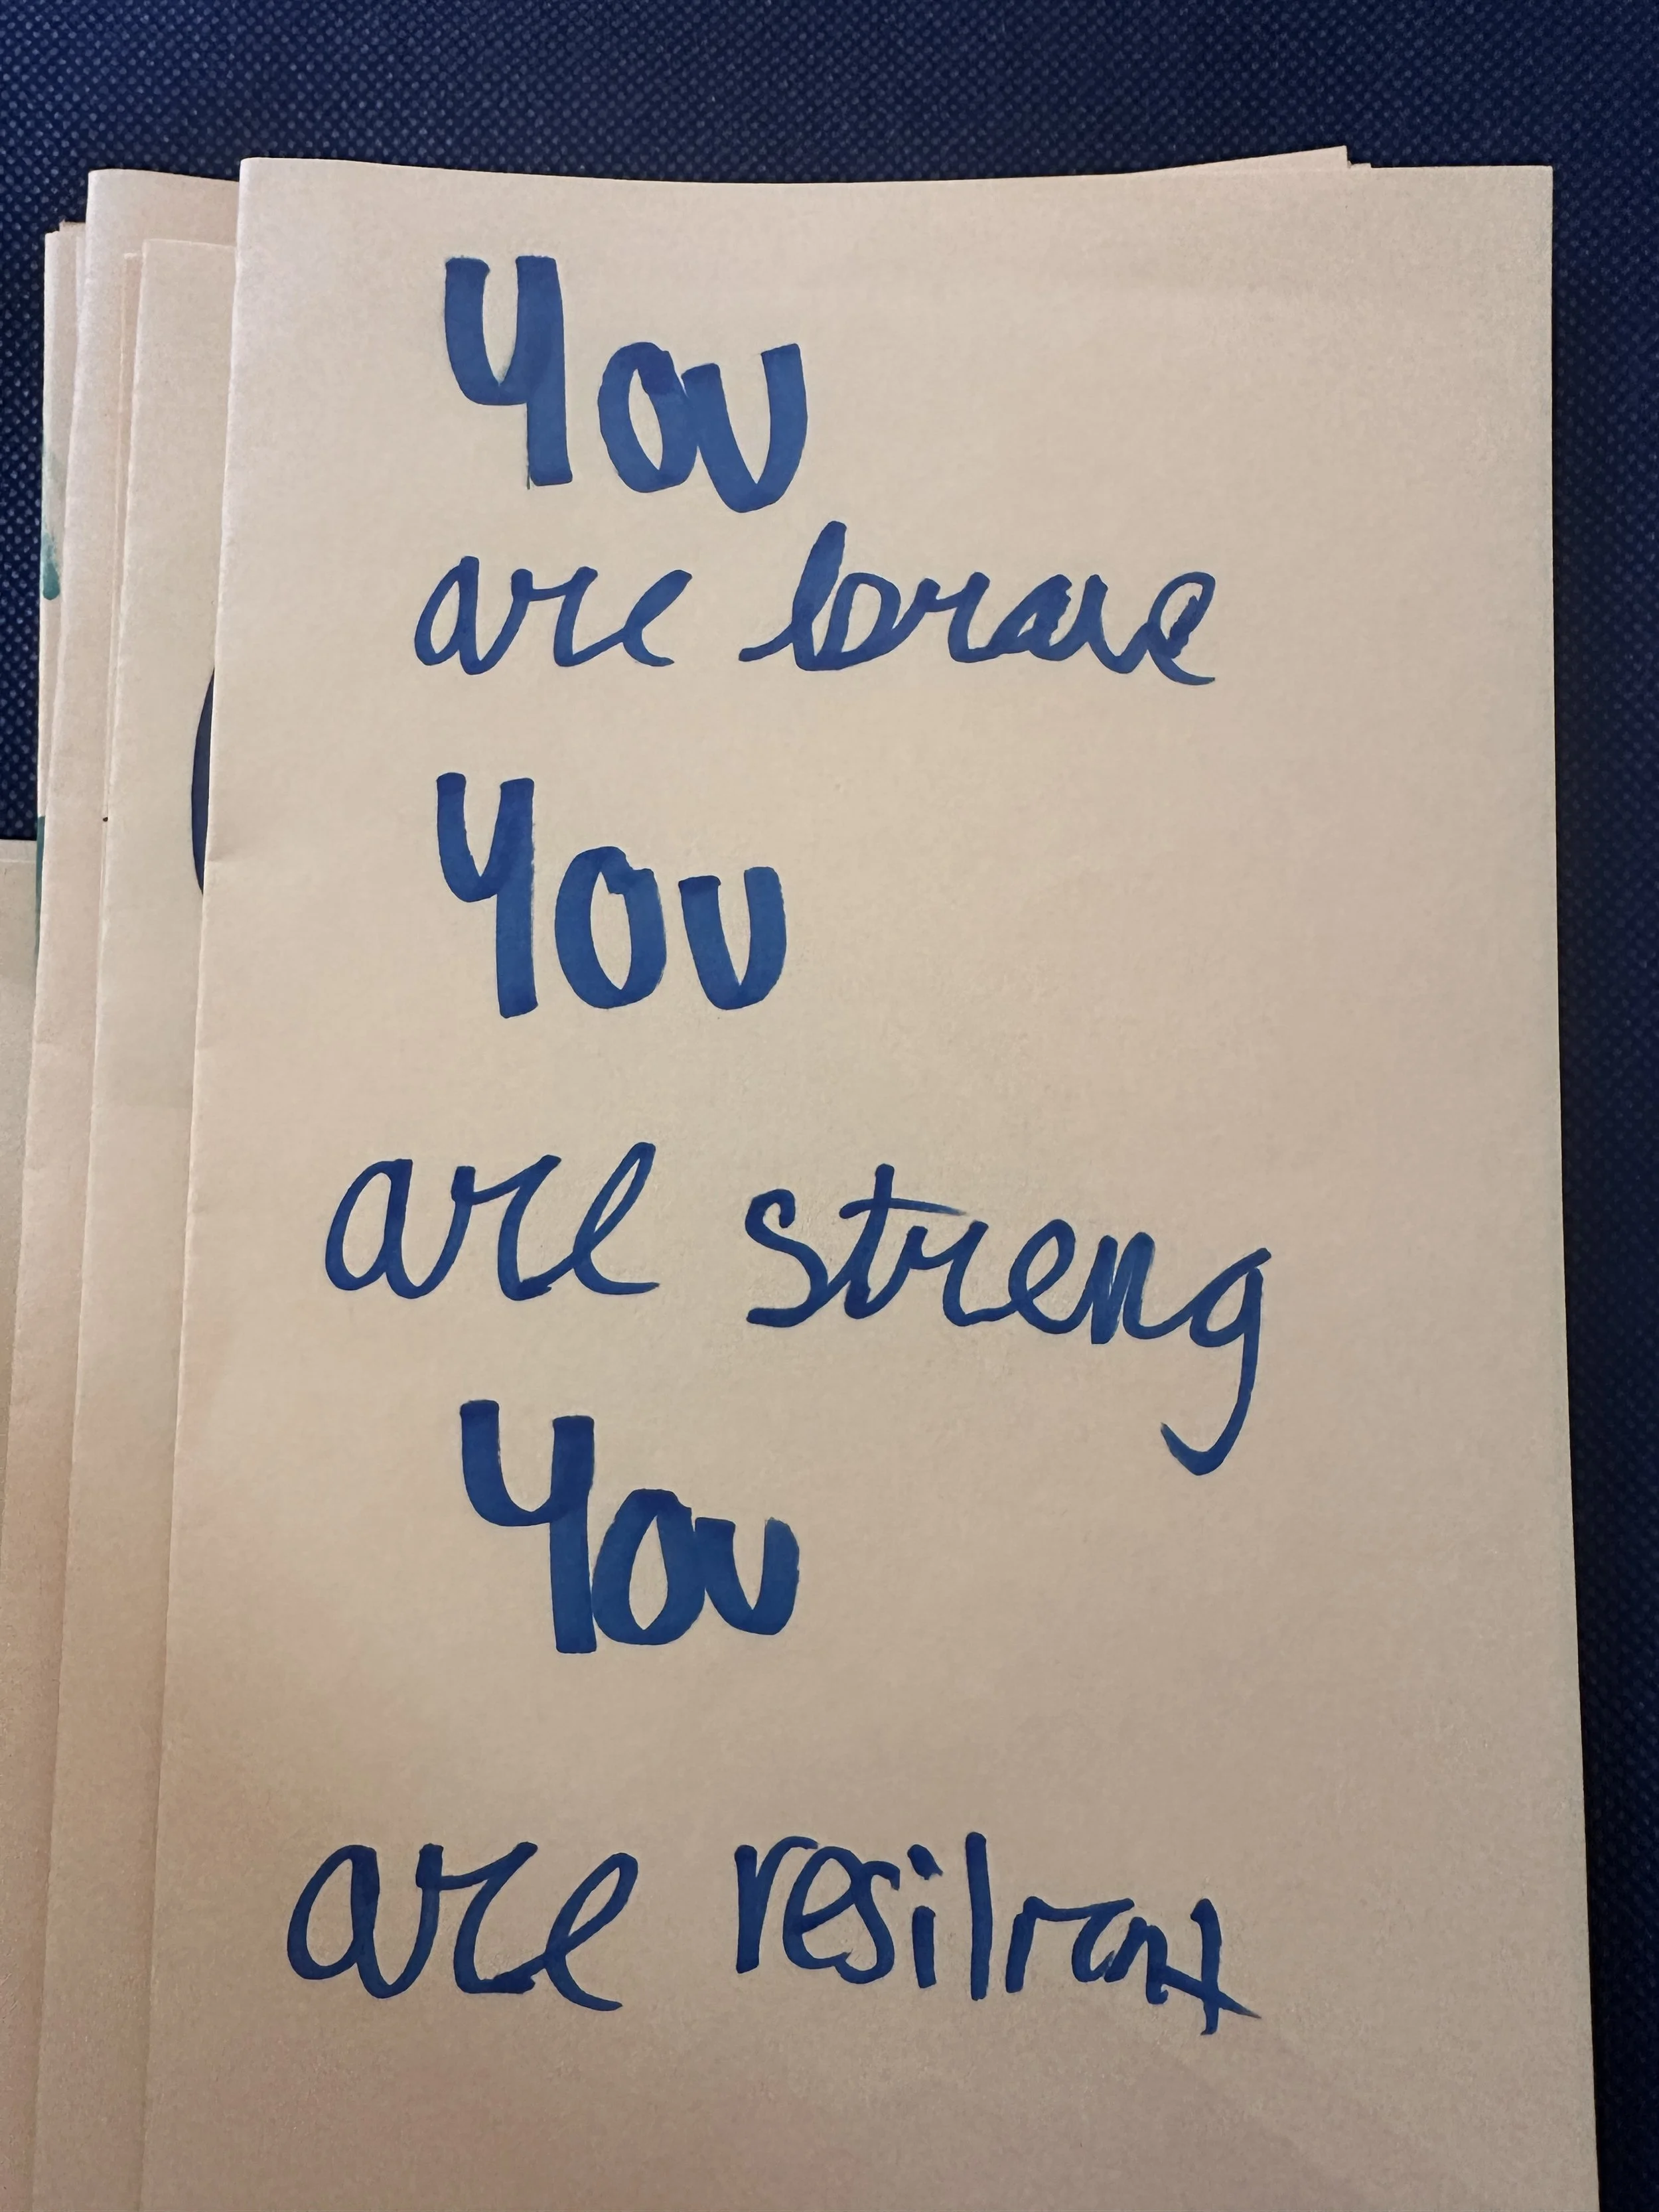 You
are brave
You
are streng
You
are resilrant